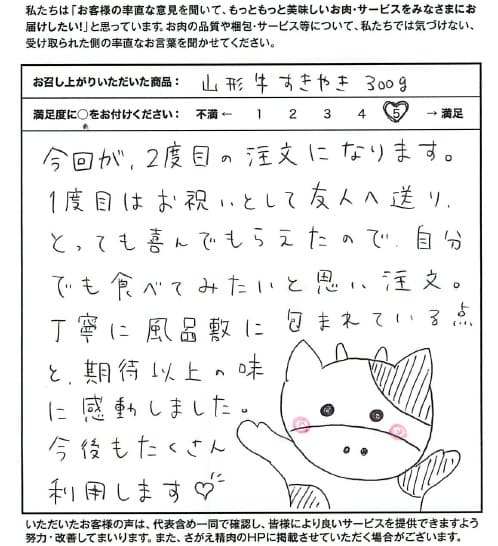 私たちは「お客様の率直な意見を聞いて、もっともっと美味しいお肉・サービスをみなさまにお
届けしたい!」と思っています。お肉の品質や梱包・サービス等について、私たちでは気づけない、
受け取られた側の率直なお言葉を聞かせてください。
お召し上がりいただいた商品: 山形牛すきやき 300g
満足度に○をお付けください: 不満 ← 1 2 3 4 5 → 満足
今回が、2度目の注文になります。
1度目はお祝いとして友人へ送り、
とっても喜んでもらえたので、自分
でも食べてみたいと思い注文。
丁寧に風品敷に包まれている点
と、期待以上の味
に感動しました。
今後もたくさん
利用します♡
いただいたお客様の声は、代表含め一同で確認し、皆様により良いサービスを提供できますよう
努力・改善してまいります。また、さがえ精肉のHPに掲載させていただく場合がございます。